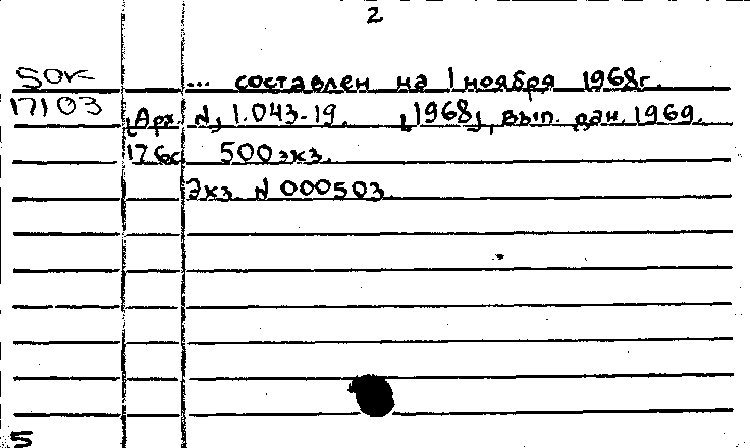 2
50к ... составлен на 1 ноября 1968г.
17103 [Арх. N] 1.043-19. [1968], вып. дан. 1969.
176с 500 экз.
Экз. N 000503.
5